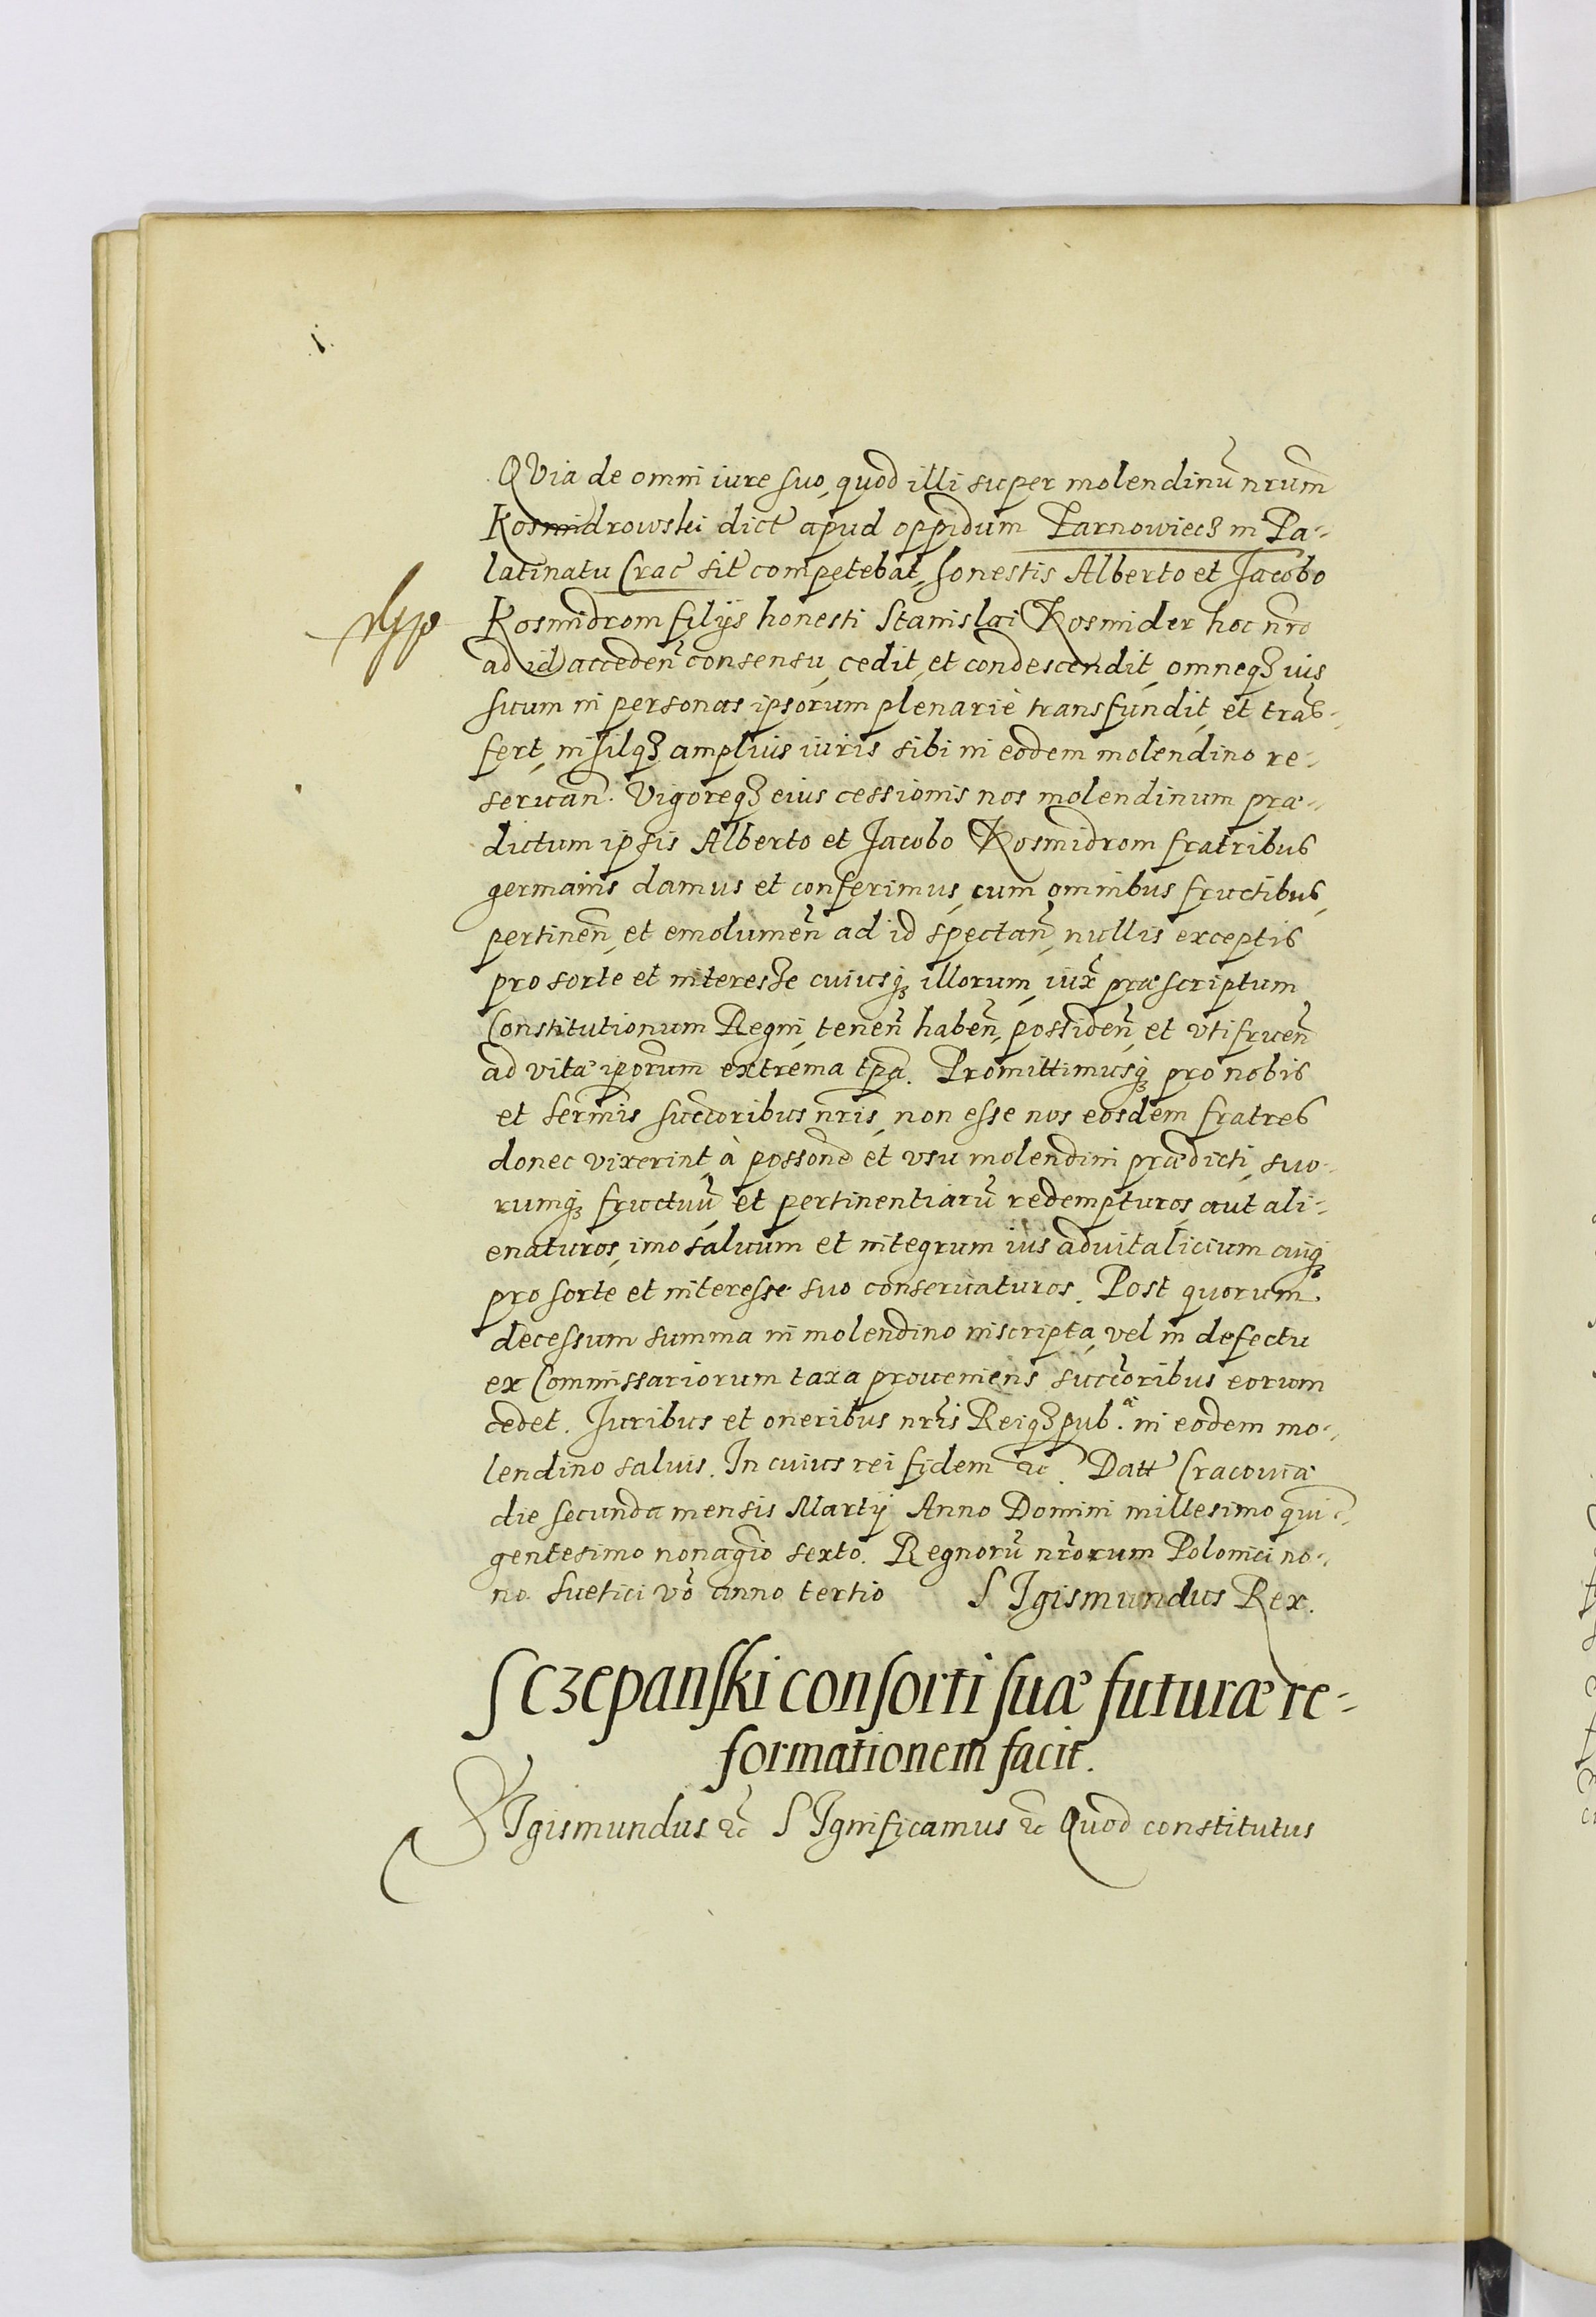 i.
QVia de omni iure suo, quod illi super molendinũ nrum̃
Kosmidrowski dict̃ apud oppidum Tarnowiecz in Pa-
latinatu Crac̃ sit̃ competebat, honestis Alberto et Jacobo
Kosmidrom filijs honesti Stanislai Kosmider hoc nr̃o
ad id acceden̄ consensu, cedit, et condescendit, omneqȝ ius
suum in personas ipsorum plenariè transfundit, et trãs-
fert, nihilqȝ amplius iuris sibi in eodem molendino re-
seruan̄. Vigoreqȝ eius cessionis nos molendinum præ-
dictum ipsis Alberto et Jacobo Kosmidrom fratribus
germanis damus et conferimus, cum omnibus fructibus,
pertinen̄, et emolumen̄ ad id spectan̄, nullis exceptis
pro sorte et interesse cuiusqȝ illorum, iux̃ præscriptum
Constitutionum Regni, tenen̄ haben̄, possiden̄, et vtifruen̄
ad vitæ ip̃orum extrema tp̃a. Promittimusqȝ pro nobis
et Serm̃is succ̃oribus nr̃is, non esse nos eosdem fratres
donec vixerint, à possõne et vsu molendini prædicti, suo-
rumqȝ fructuũ, et pertinentiarũ redempturos, aut ali-
enaturos, imo saluum et integrum ius aduitalicium cuiqȝ
pro sorte et interesse suo conseruaturos. Post quorum
decessum summa in molendino inscripta, vel in defectu
ex Commissariorum taxa proueniens succ̃oribus eorum
cedet. Juribus et oneribus nr̃is Reiqȝ pub.æ in eodem mo-
lendino saluis. In cuius rei fidem &c. Datt̃ Cracouiæ
die secunda mensis Martij Anno Domini millesimo quĩ-
gentesimo nonag̃io sexto. Regnorũ nr̃orum Polonici no-
no Suetici võ anno tertio SIgismundus Rex.
Sczepanski consorti suæ futuræ re-
formationem facit.
SIgismundus &c SIgnificamus &c Quod constitutus